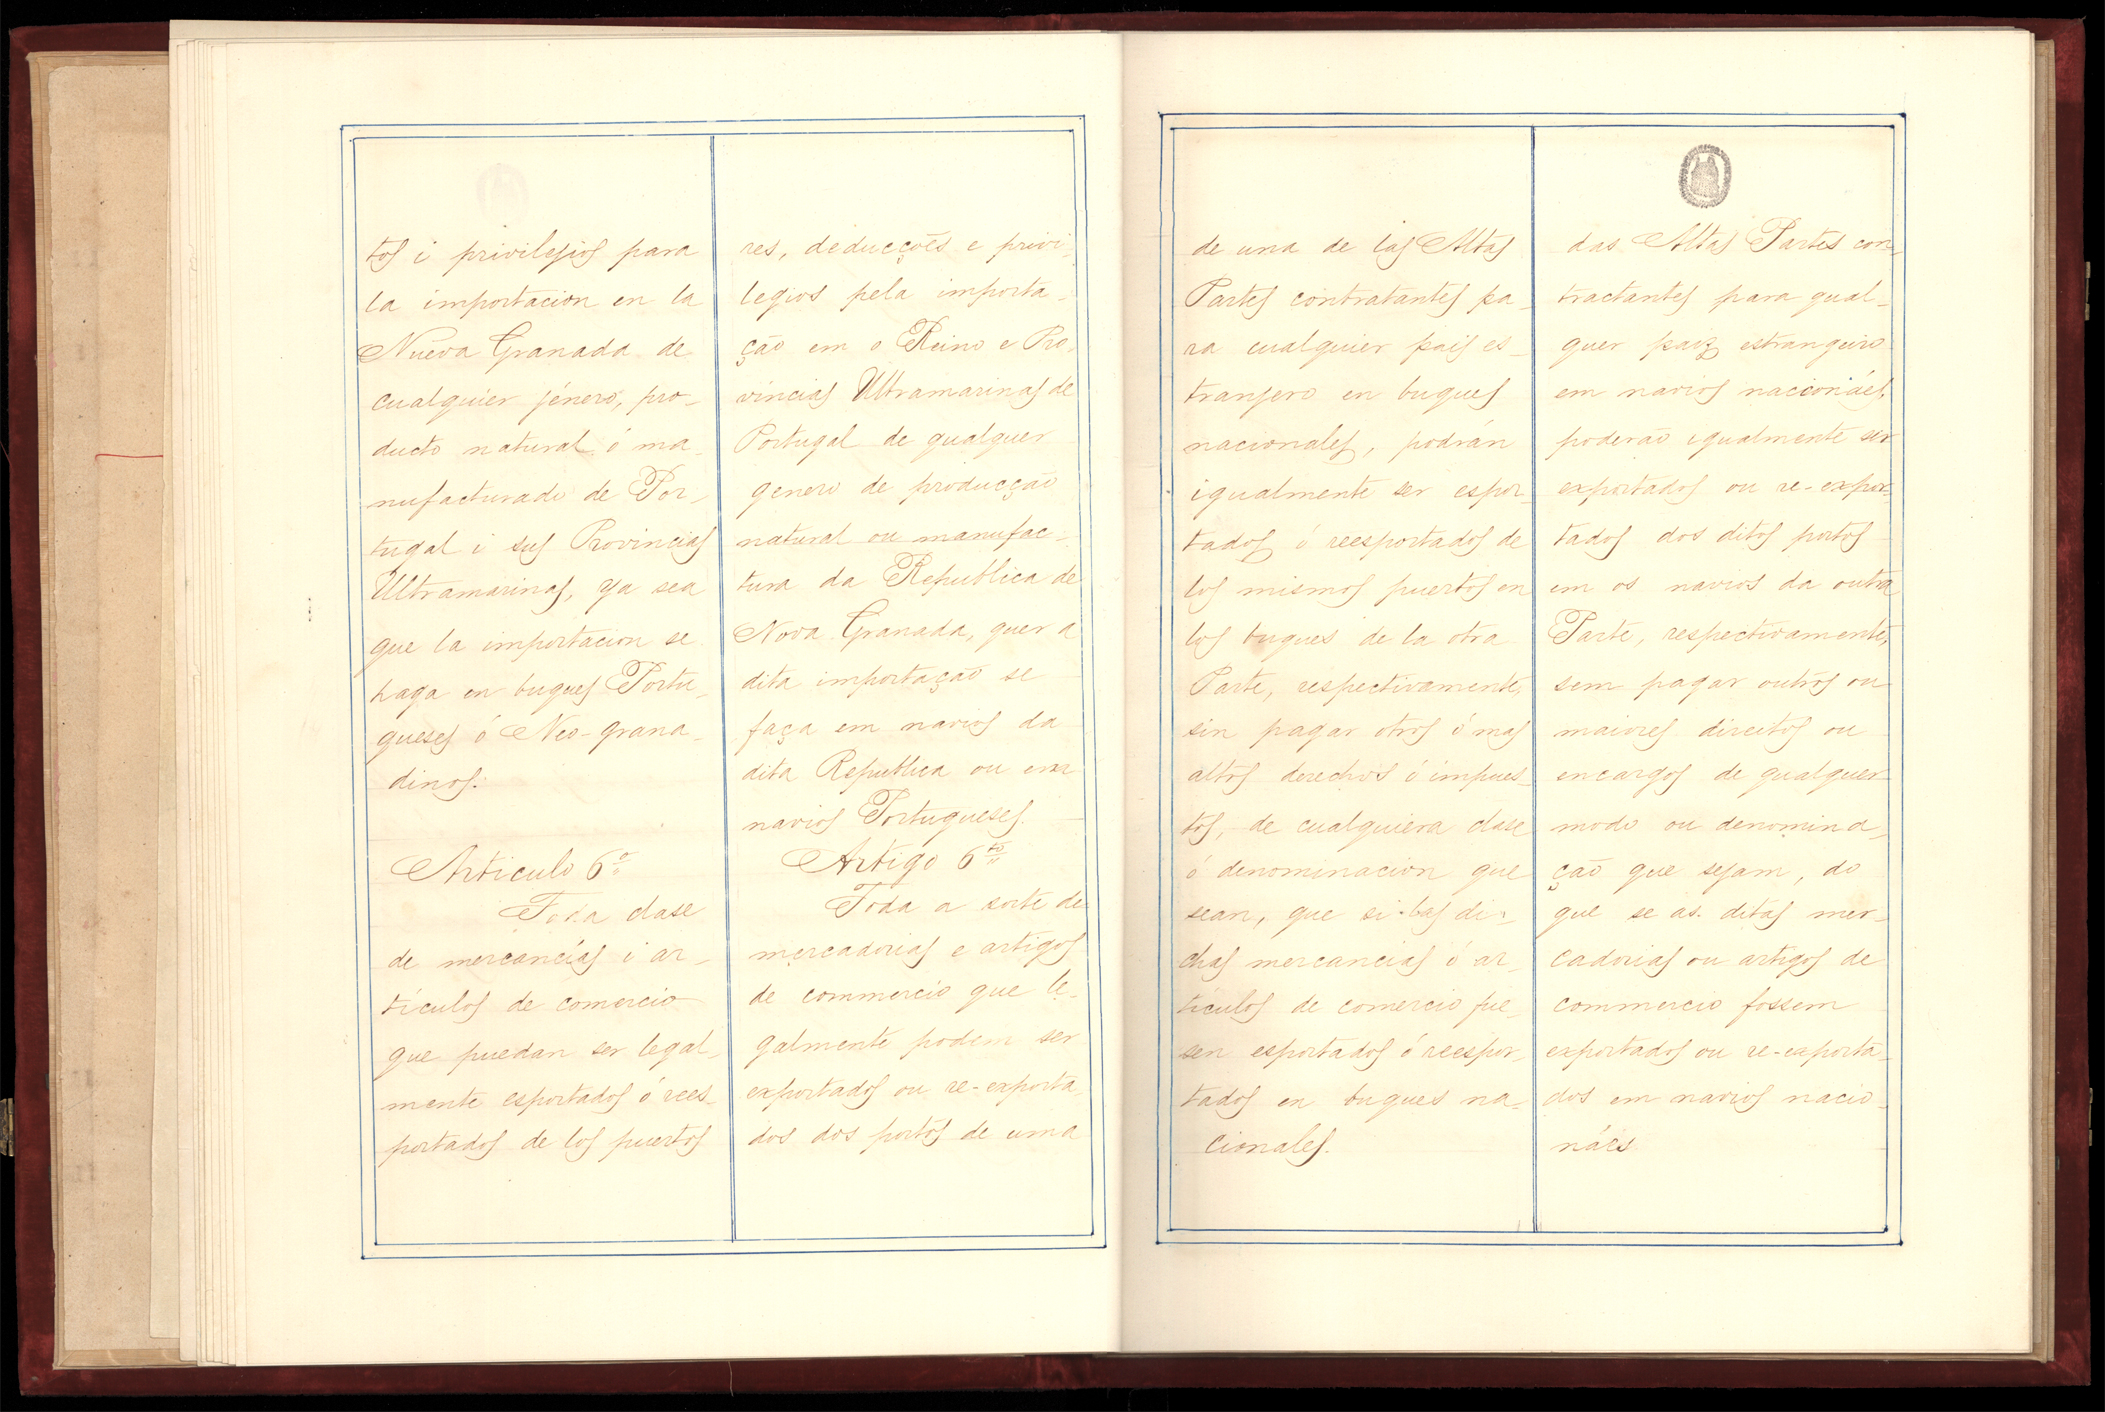 tos i privilejios para
la importacion en la
Nueva Granada de
cualquier jénero, pro-
ducto natural ó ma-
nufacturado de Por-
tugal i sus Provincias
Ultramarinas, ya sea
que la importacion se
haga en buques Portu-
gueses ó Neo-grana-
dinos.
Articulo 6º
Toda clase
de mercancías i ar-
tículos de comercio
que puedan ser legal-
mente esportados ó rees-
portados de los puertos
res, deducções e privi-
legios pela importa-
ção em o Reino e Pro-
vincias Ultramarinas de
Portugal de qualquer
genero de producção
natural ou manufac-
tura da Republica de
Nova Granada, quer a
dita importação se
faça em navios da
dita Republica ou em
navios Portugueses.
Artigo 6to
Toda a sorte de
mercadorias e artigos
de commercio que le-
galmente podem ser
exportados ou re-exporta-
dos dos portos de uma
de una de las Altas
Partes contratantes pa-
ra cualquier pais es-
tranjero en buques
nacionales, podrán
igualmente ser espor-
tados ó reesportados de
los mismos puertos en
los buques de la otra
Parte, respectivamente,
sin pagar otros ó mas
altos derechos ó impues-
tos, de cualquiera clase
ó denominacion que
sean, que si las di-
chas mercancias ó ar-
tículos de comercio fue-
sen esportados ó reespor-
tados en buques na-
cionales.
das Altas Partes con-
tractantes para qual-
quer paiz estrangeiro
em navios nacionáes,
poderão igualmente ser
exportados ou re-expor-
tados dos ditos portos
em os navios da outra
Parte, respectivamente,
sem pagar outros ou
maiores direitos ou
encargos de qualquer
modo ou denomina-
ção que sejam, do
que se as ditas mer-
cadorias ou artigos de
commercio fossem
exportados ou re-exporta-
dos em navios nacio-
náes